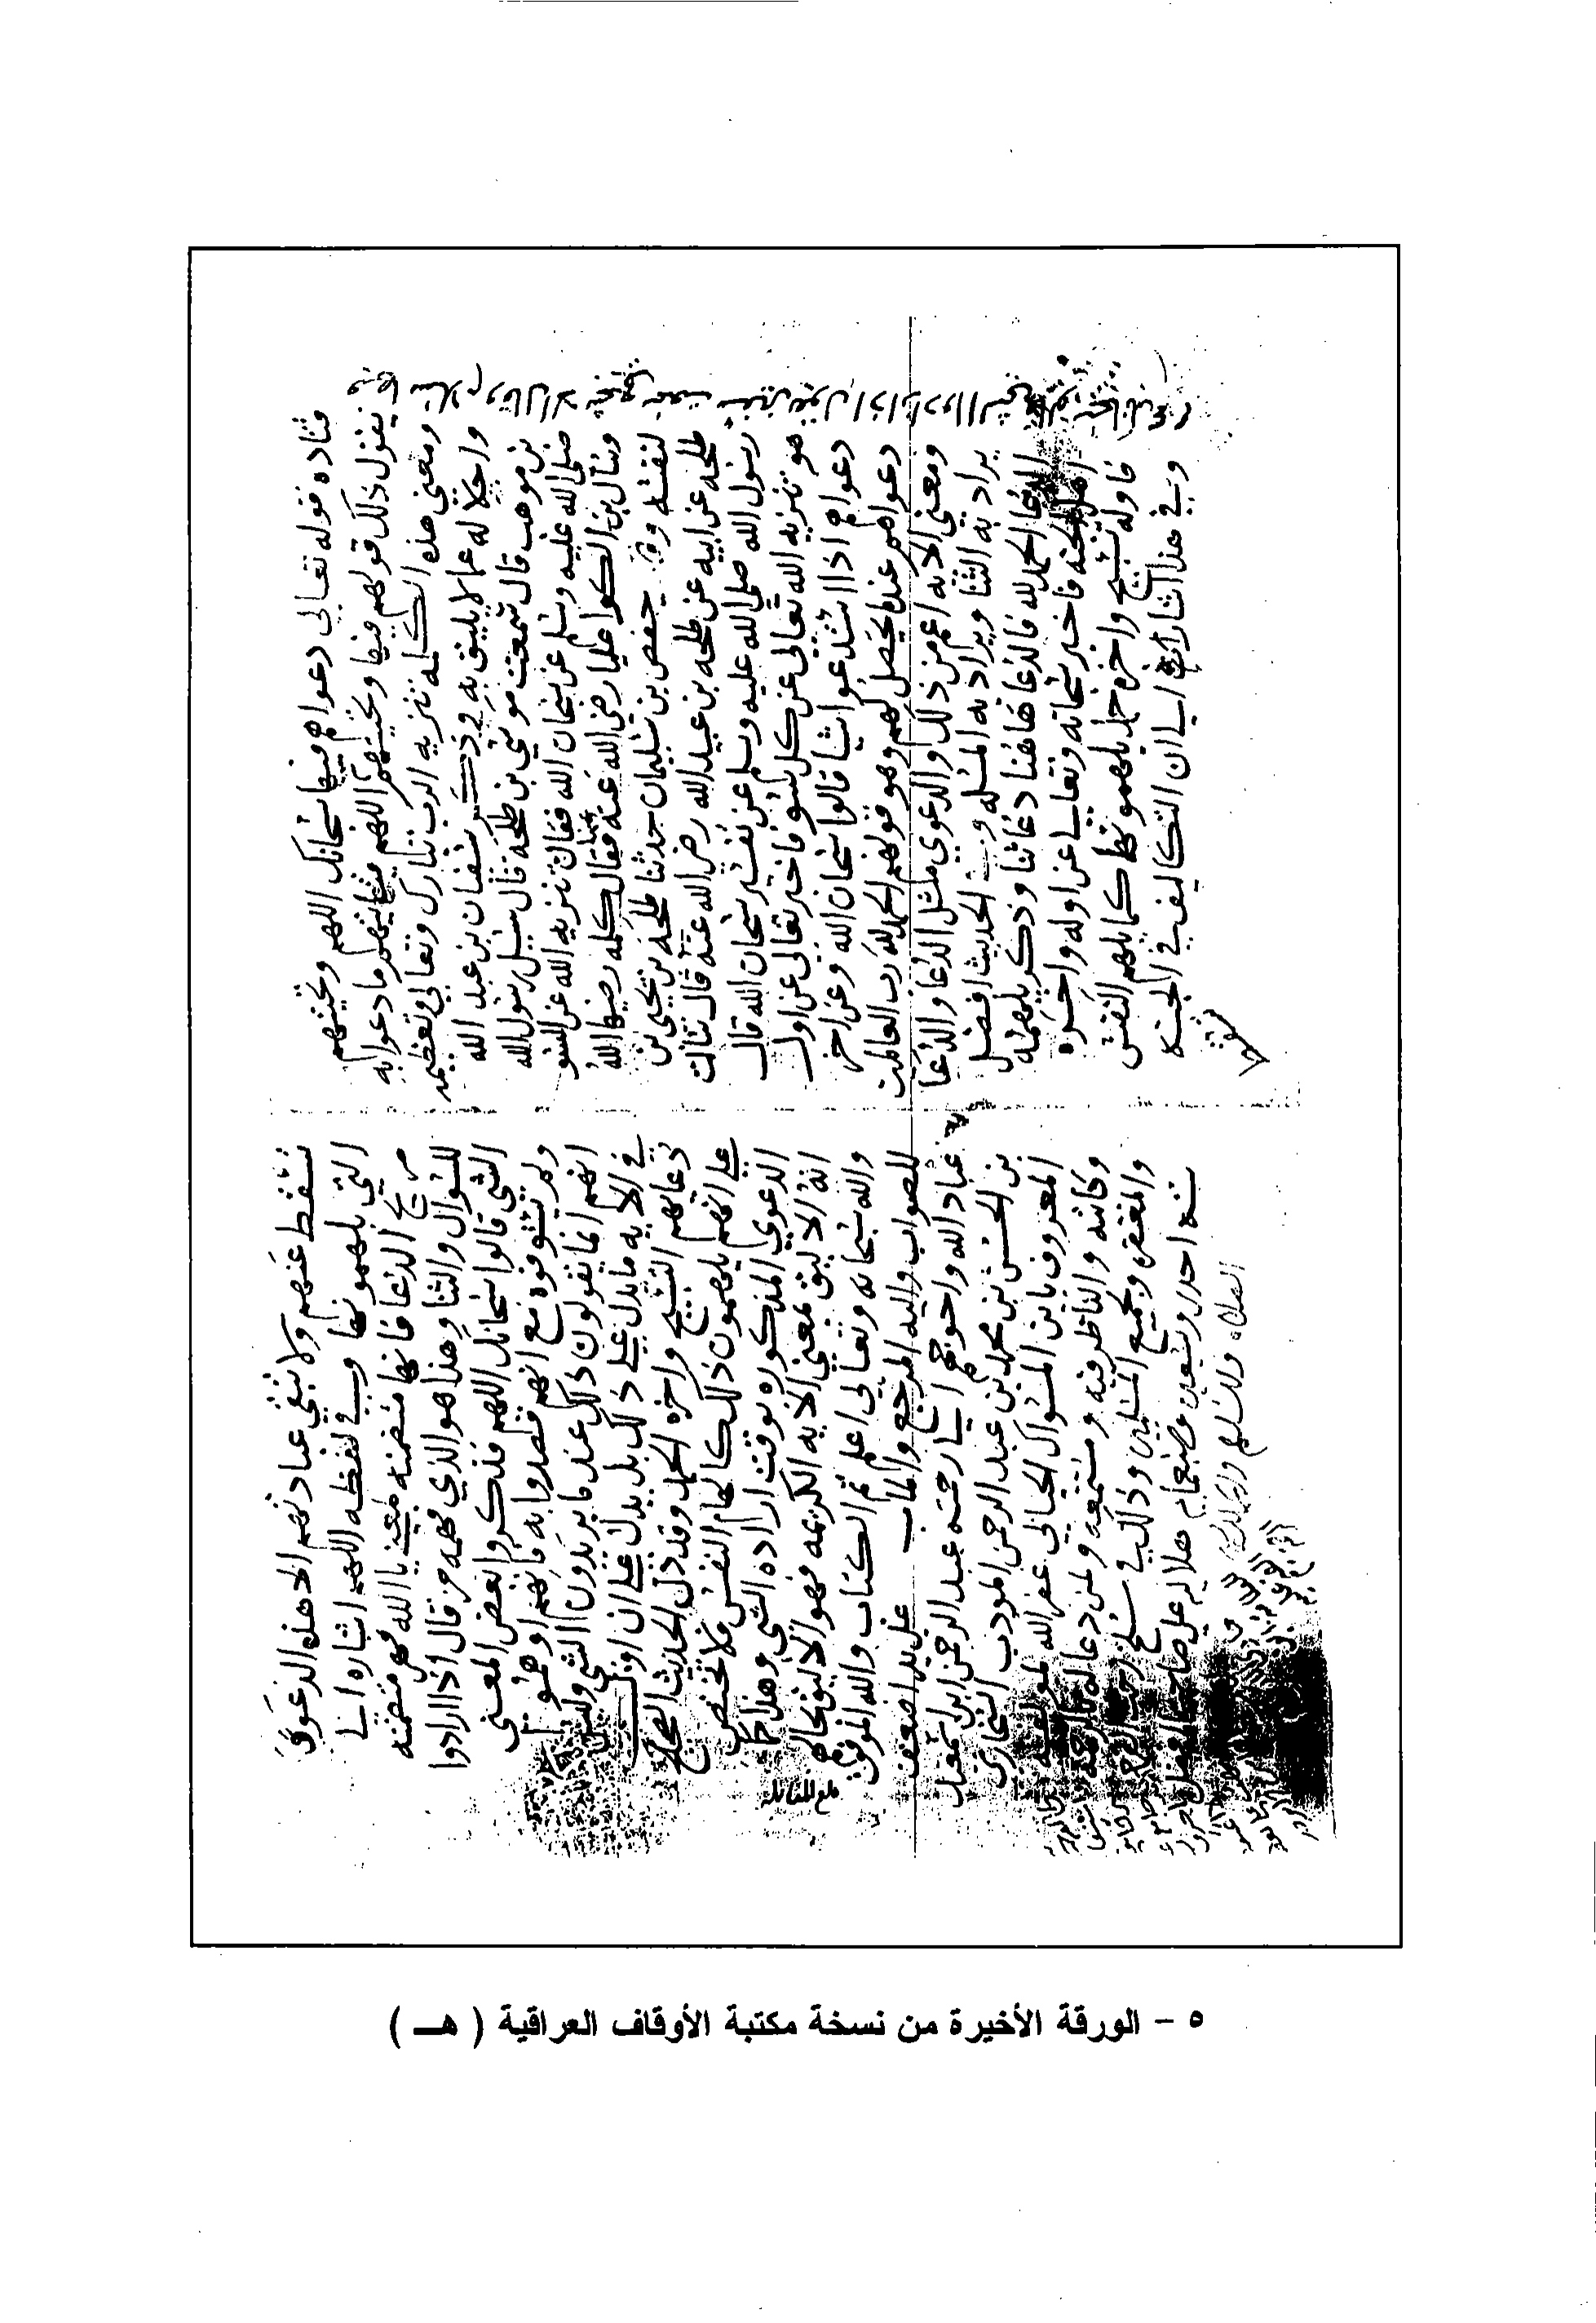 قتاده قوله تعالى دعواهم فيها سبحانك اللهم وتحيتهم
يقول ذلك قولهم فيها وتحيتهم اللهم ما دعوا به
ومعنى هذه الكلمة تنزيه الرب تبارك وتعالى وتعظيمه
واجلاله عما لا يليق به وذكر سفيان بن عبد الله
بن موهب قال سمعت موسى بن طلحة قال سيل رسول الله
صلى الله عليه وسلم عن سبحان الله فقال تنزيه الله عن السو
وسال بن الكوا عليا رضي الله عنه فقال كلمه رضيها الله
لنفسه حفص بن سليمان حدثنا طلحه بن يحيى بن
طلحه عن ابيه عن طلحه بن عبيد الله رضي الله عنه قال سالت
رسول الله صلى الله عليه وسلم عن تفسير سبحان الله قال
هو تنزيه الله تعالى عن كل سو فاخبر تعالى عن اول
دعواهم اذا استدعوا شيا قالوا سبحان الله وعن اخر
دعواهم عندما يحصل لهم وهو قولهم الحمد لله رب العالمين
ومعنى الايه اعم من ذلك والدعوى مثل الدعا والدعا
يراد به الثنا ويراد به المسله وفي الحديث افضل
الدعا الحمد لله فالدعا هاهنا دعا ثنا وذكر يلهمه
اهل الجنه فاخبر سبحانه وتعالى عن اوله واخره
فاوله تسبيح واخره حمد يلهمونها كما يلهمو النفس
وفي هذا اشاره الى ان التكاليف في الجنه
تسقط
تسقط عنهم ولا تبقى عبادتهم الا هذه الدعوى
التي يلهمونها وفي لفظه اللهم اشاره الى
صريح الدعا فانها متضمنه معنى يا الله فهي متضمنه
للسوال والثنا وهذا هو الذي فهمه من قال اذا ارادوا
الشي قالوا سبحانك اللهم فذكروا بعض المعنى
ولم يستوفوه مع انهم قصدوا به فانهم اوهموا
انهم انما يقولون ذلك عندما يريدون الشي وليس
في الايه ما يدل على ذلك بل يدل على ان اول
دعايهم التسبيح واخره الحمد وقد دل الحديث الصحيح
على انهم يلهمون ذلك كالهام النفس فلا تختص
الدعوى المذكوره بوقت اراده الشي وهذا كما
انه الاليق بمعنى الايه الكريمه فهو الاليق بحالهم
بلغ مقابله
والله سبحانه وتعالى اعلم تم الكتاب والله الموفق
للصواب واليه المرجع والماب على يد اضعف
عباد الله واحوجهم الى رحمته عبد الرحمن بن اسمعيل
بن الحسن بن محمد بن عبد الرحمن المودب البخاري
المعروف بابن المسوال الحيالي غفر الله لمولفه
وكاتبه والناظر فيه ومستمعه ولمن دعا له بالرحمه
والمغفره ولجميع المسلمين وذلك في سلخ رجب
سنه احدى وتسعين وسبعمايه
الصلاه والتسليم
٥ - الورقة الأخيرة من نسخة مكتبة الأوقاف العراقية ( هـ )